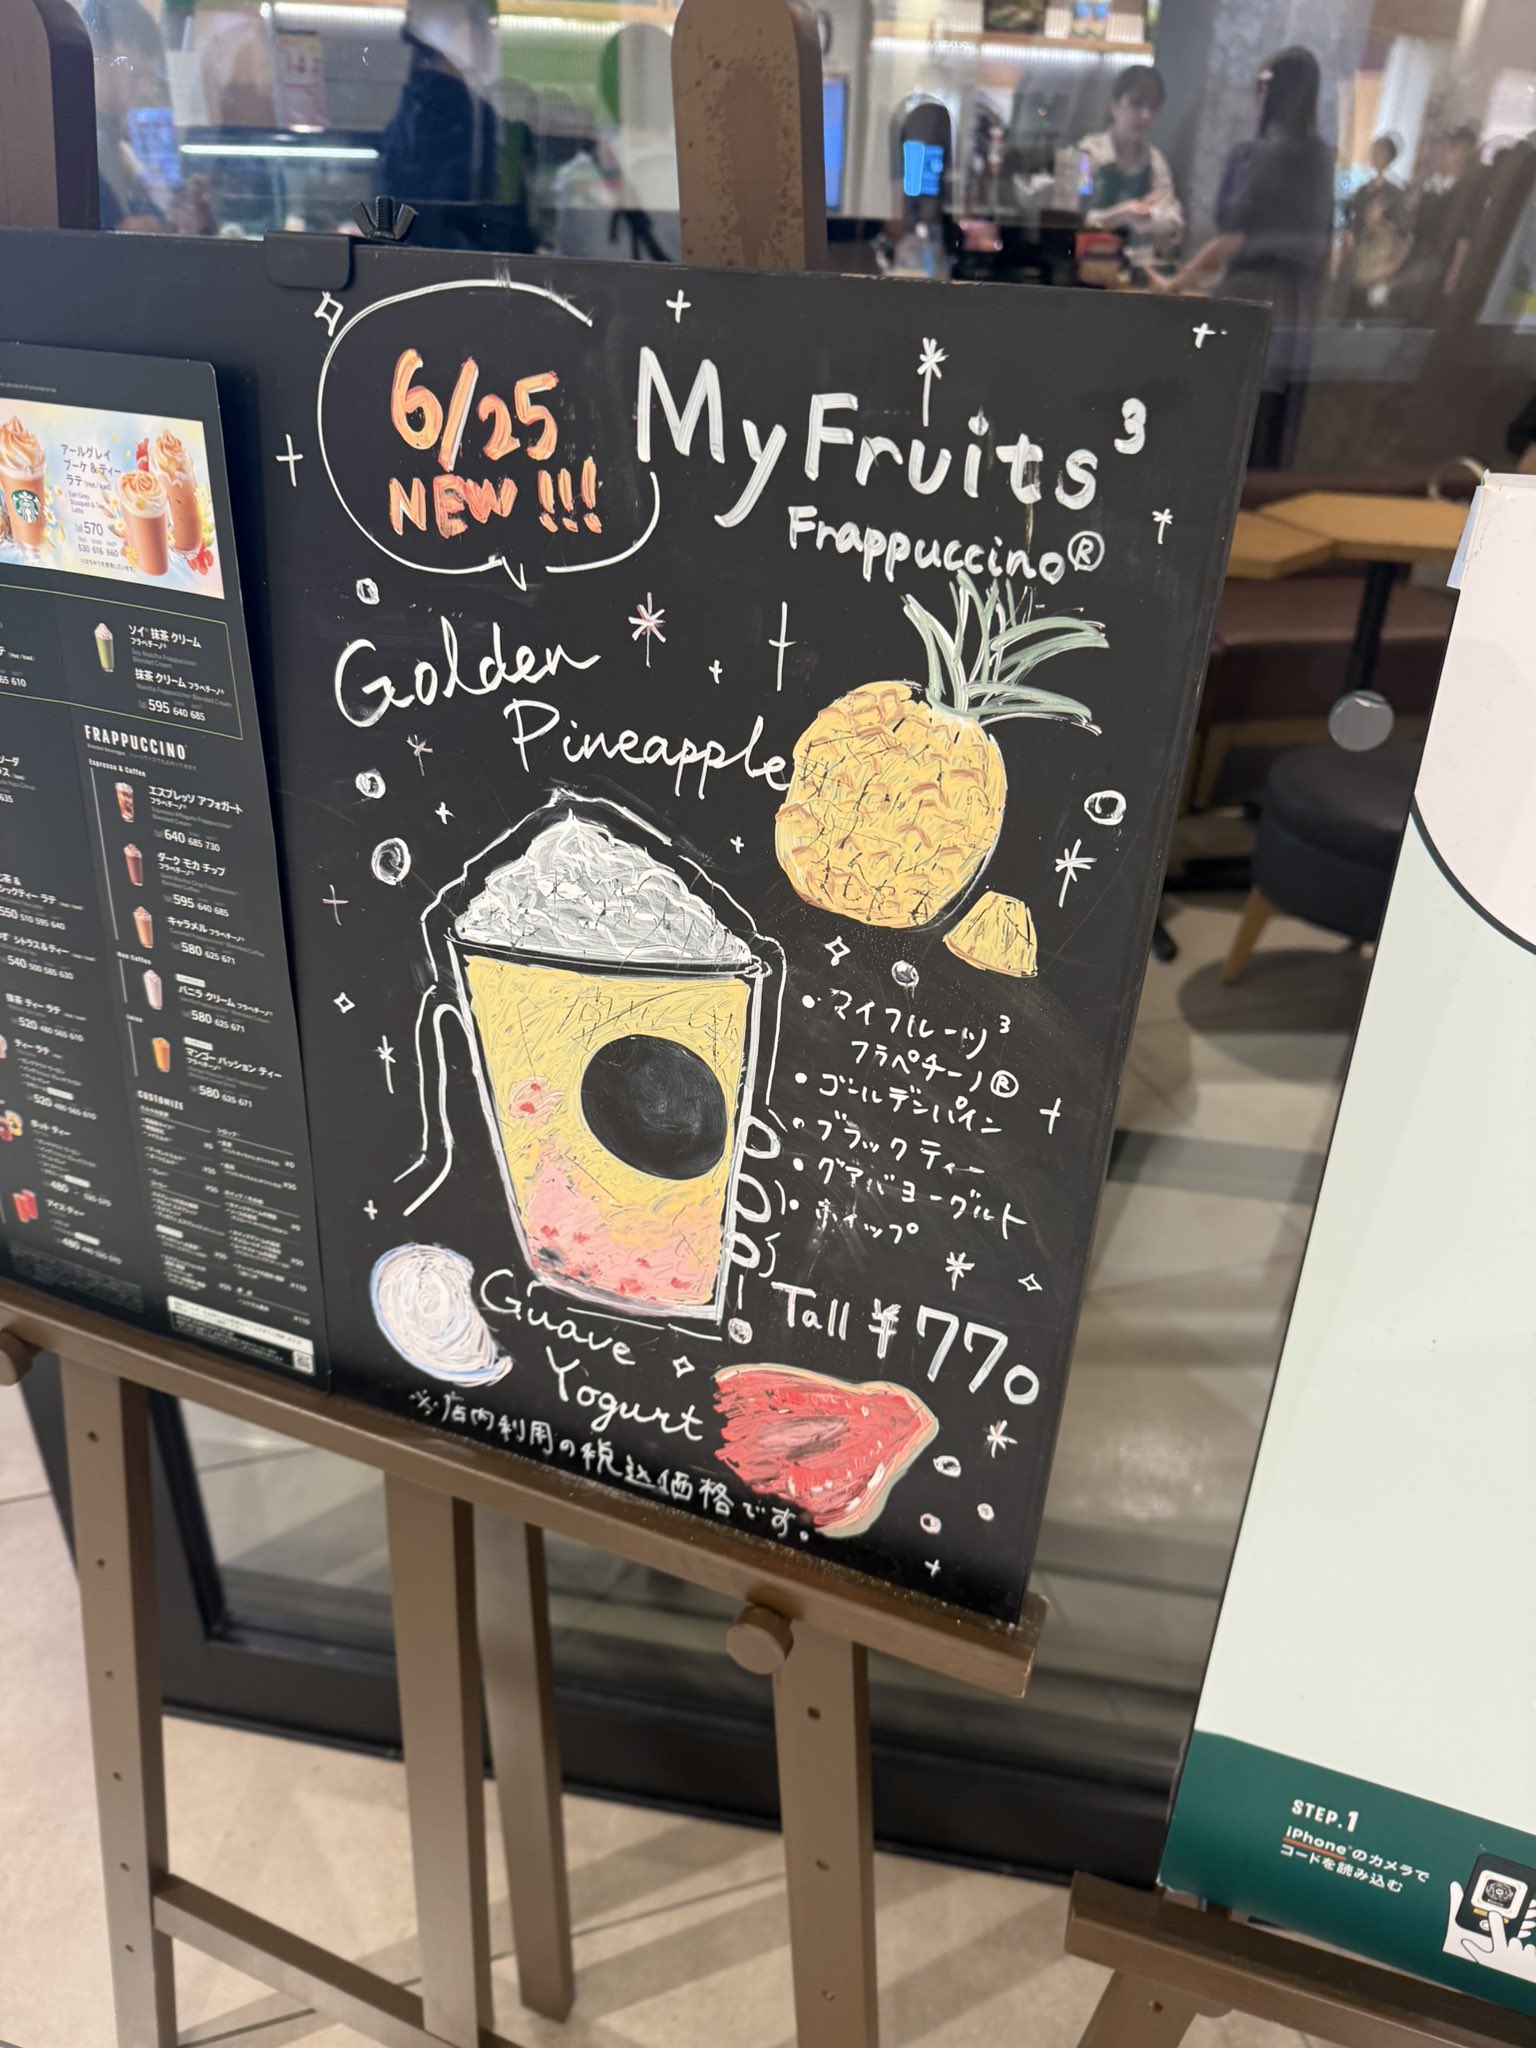 6/25
NEW!!!
MyFruits³
Frappuccino®
Golden
Pineapple
・マイフルーツ³
フラペチーノ®
・ゴールデンパイン
・ブラックティー
・グアバヨーグルト
・ホイップ
Tall ¥770
Guave
Yogurt
※店内利用の税込価格です。
アールグレイ
ブーケ & ティー
ラテ (Hot / Iced)
Earl Grey
Bouquet & Tea
Latte
570
530 616 660
ソイ 抹茶 クリーム
フラペチーノ®
抹茶 クリーム フラペチーノ®
595 640 685
FRAPPUCCINO
Espresso & Coffee
エスプレッソ アフォガート
フラペチーノ®
640 685 730
ダーク モカ チップ
フラペチーノ®
595 640 685
キャラメル フラペチーノ®
580 625 671
Non Coffee
バニラ クリーム フラペチーノ®
580 625 671
マンゴー パッション ティー
フラペチーノ®
580 625 671
CUSTOMIZE
65 610
635
550 510 595 640
シトラス & ティー
540 500 585 630
抹茶 ティー ラテ
520 480 565 610
ティー ラテ
520 480 565 610
ホット ティー
480
アイス ティー
480
STEP.1
iPhoneのカメラで
コードを読み込む